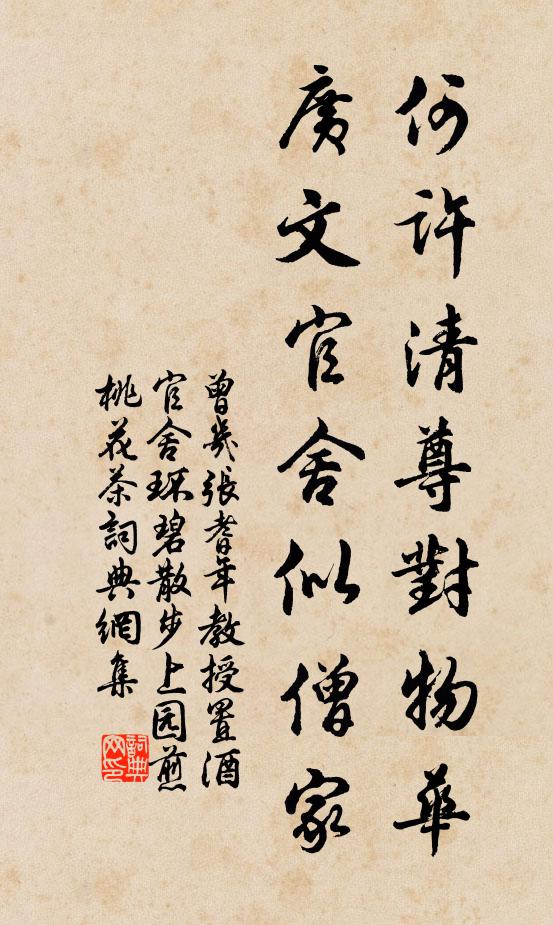 何許清尊對物華
廣文官舍似僧家
曾幾張耆年教授置酒
官舍環碧散步上园煎
桃花茶詞典網集
詞典
网印